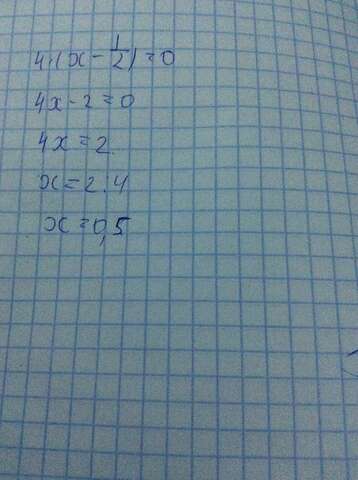 4·(x - 1/2) = 0
4x - 2 = 0
4x = 2
x = 2:4
x = 0,5